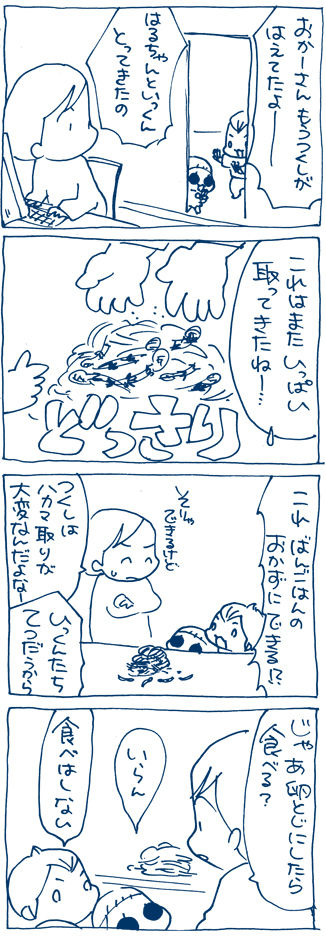 おかーさん もうつくしが
はえてたよー
はるちゃんといっくん
とってきたの
これはまた いっぱい
取ってきたねー…
どっさり
これ ばんごはんの
おかずに できる!?
そりゃ
できるけど
つくしは
ハカマ取りが
大変なんだよなー
いっくんたち
てつだうから
じゃあ卵とじにしたら
食べる?
いらん
食べはしない